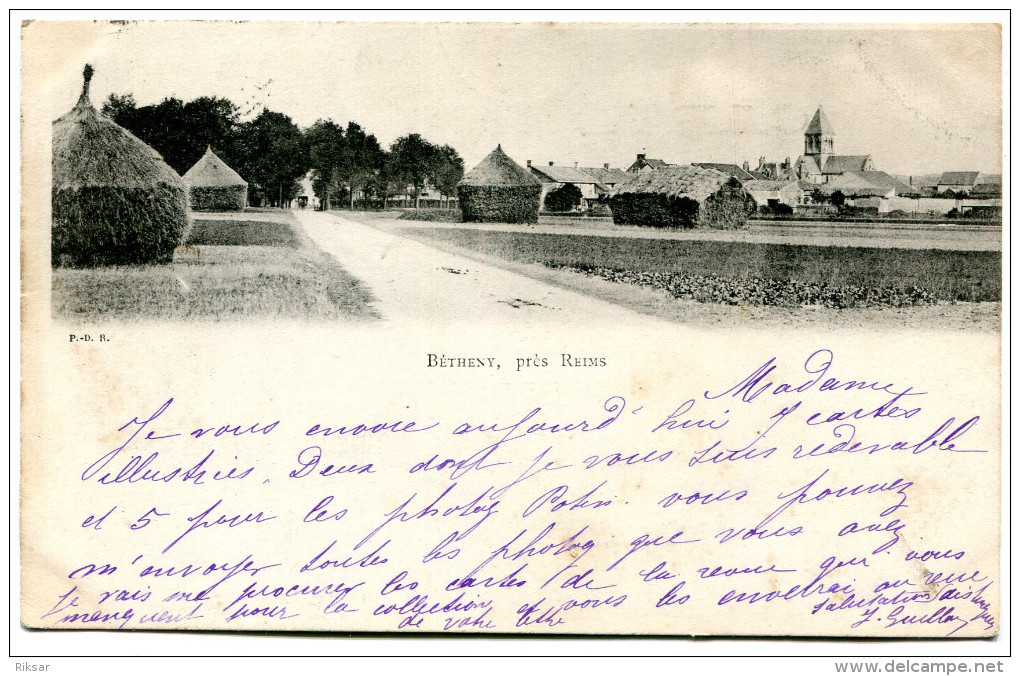 P.-D. R.
BÉTHENY, près REIMS
Madame
Je vous envoie aujourd'hui 7 cartes
illustrées. Deux dont je vous suis redevable
et 5 pour les photog Potin. vous pouvez
m'envoyer toutes les photog que vous avez
Je vais me procurer les cartes de la revue qui vous
manquent pour la collection et vous les enverrai
de votre
Salutations
J. Guillou
Riksar
www.delcampe.net